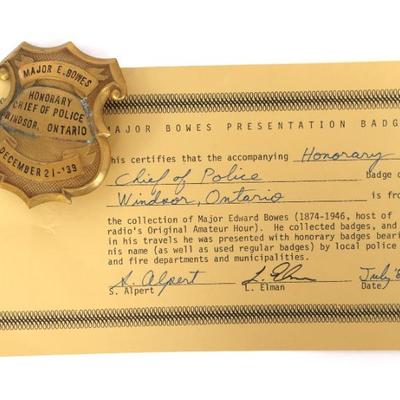 MAJOR E. BOWES
HONORARY
CHIEF OF POLICE
WINDSOR, ONTARIO
DECEMBER 21-'39
MAJOR BOWES PRESENTATION BADG
his certifies that the accompanying Honorary
Chief of Police badge o
Windsor, Ontario is fro
the collection of Major Edward Bowes (1874-1946, host of
radio's Original Amateur Hour). He collected badges, and
in his travels he was presented with honorary badges bear
his name (as well as used regular badges) by local police
and fire departments and municipalities.
S. Alpert L. Elman July '8
S. Alpert L. Elman Date